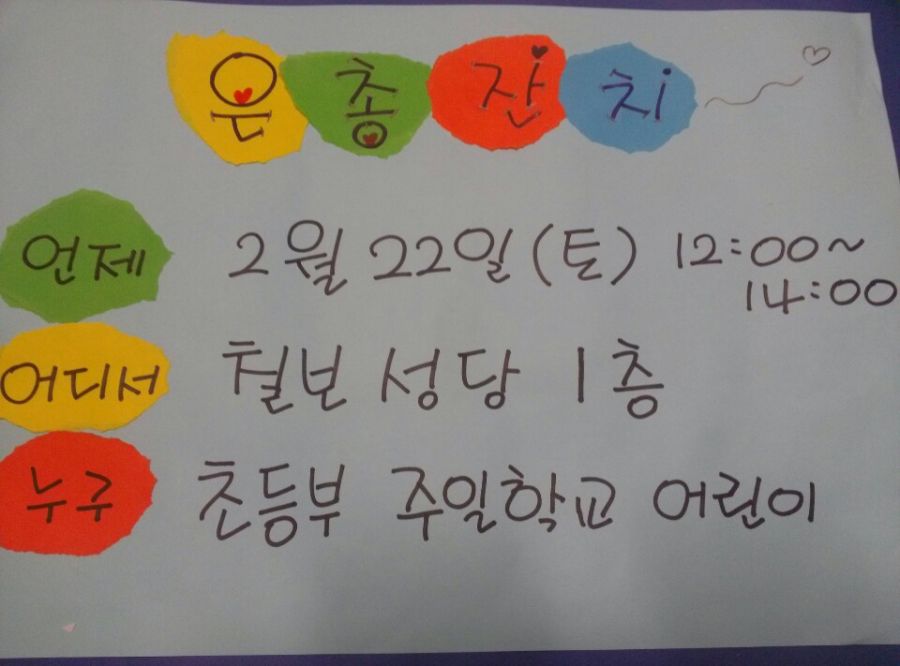 은총잔치
언제 2월 22일(토) 12:00~
14:00
어디서 철보 성당 1층
누구 초등부 주일학교 어린이